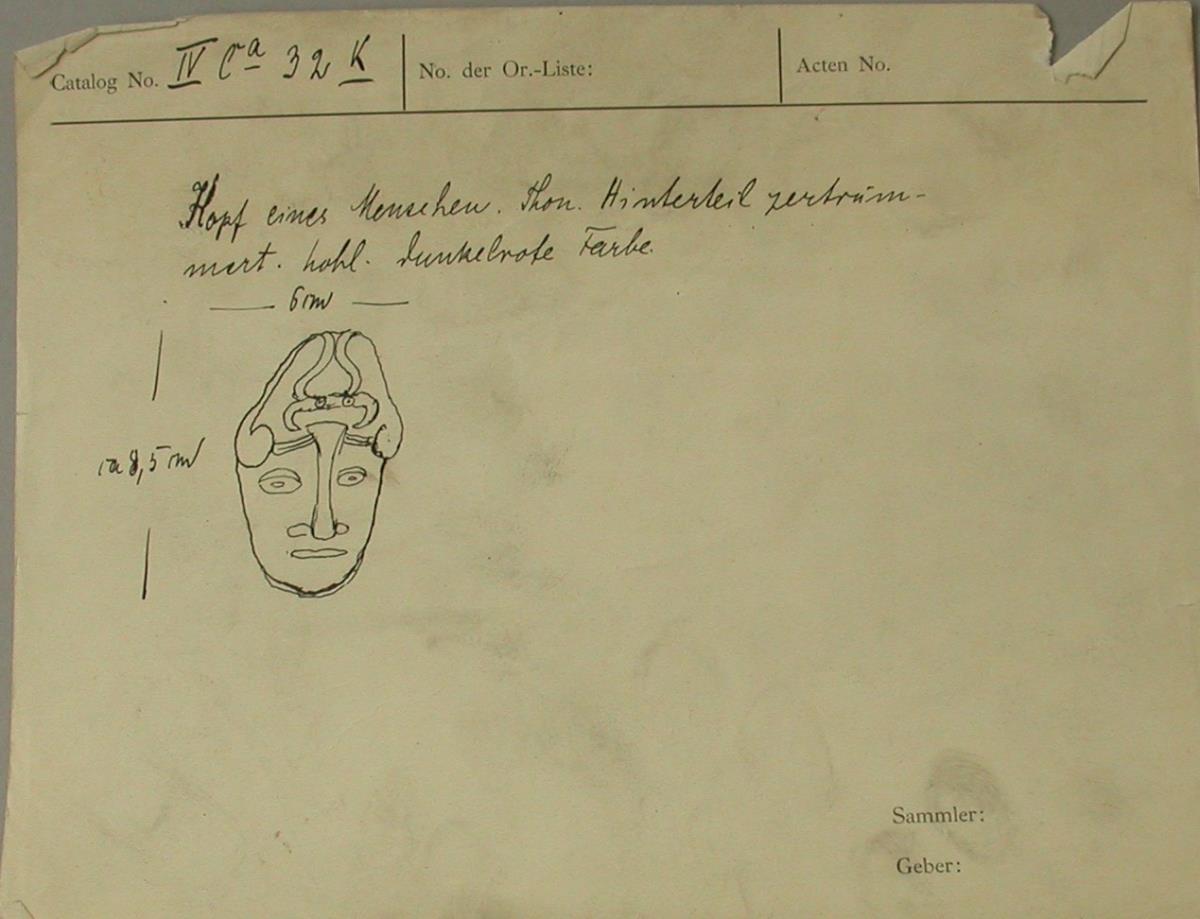 Catalog No. IV Ca 32 K
No. der Or.-Liste:
Acten No.
Kopf eines Menschen. Thon. Hinterteil zertrüm-
mert. hohl. dunkelrote Farbe.
6 cm
ca 8,5 cm
Sammler:
Geber: